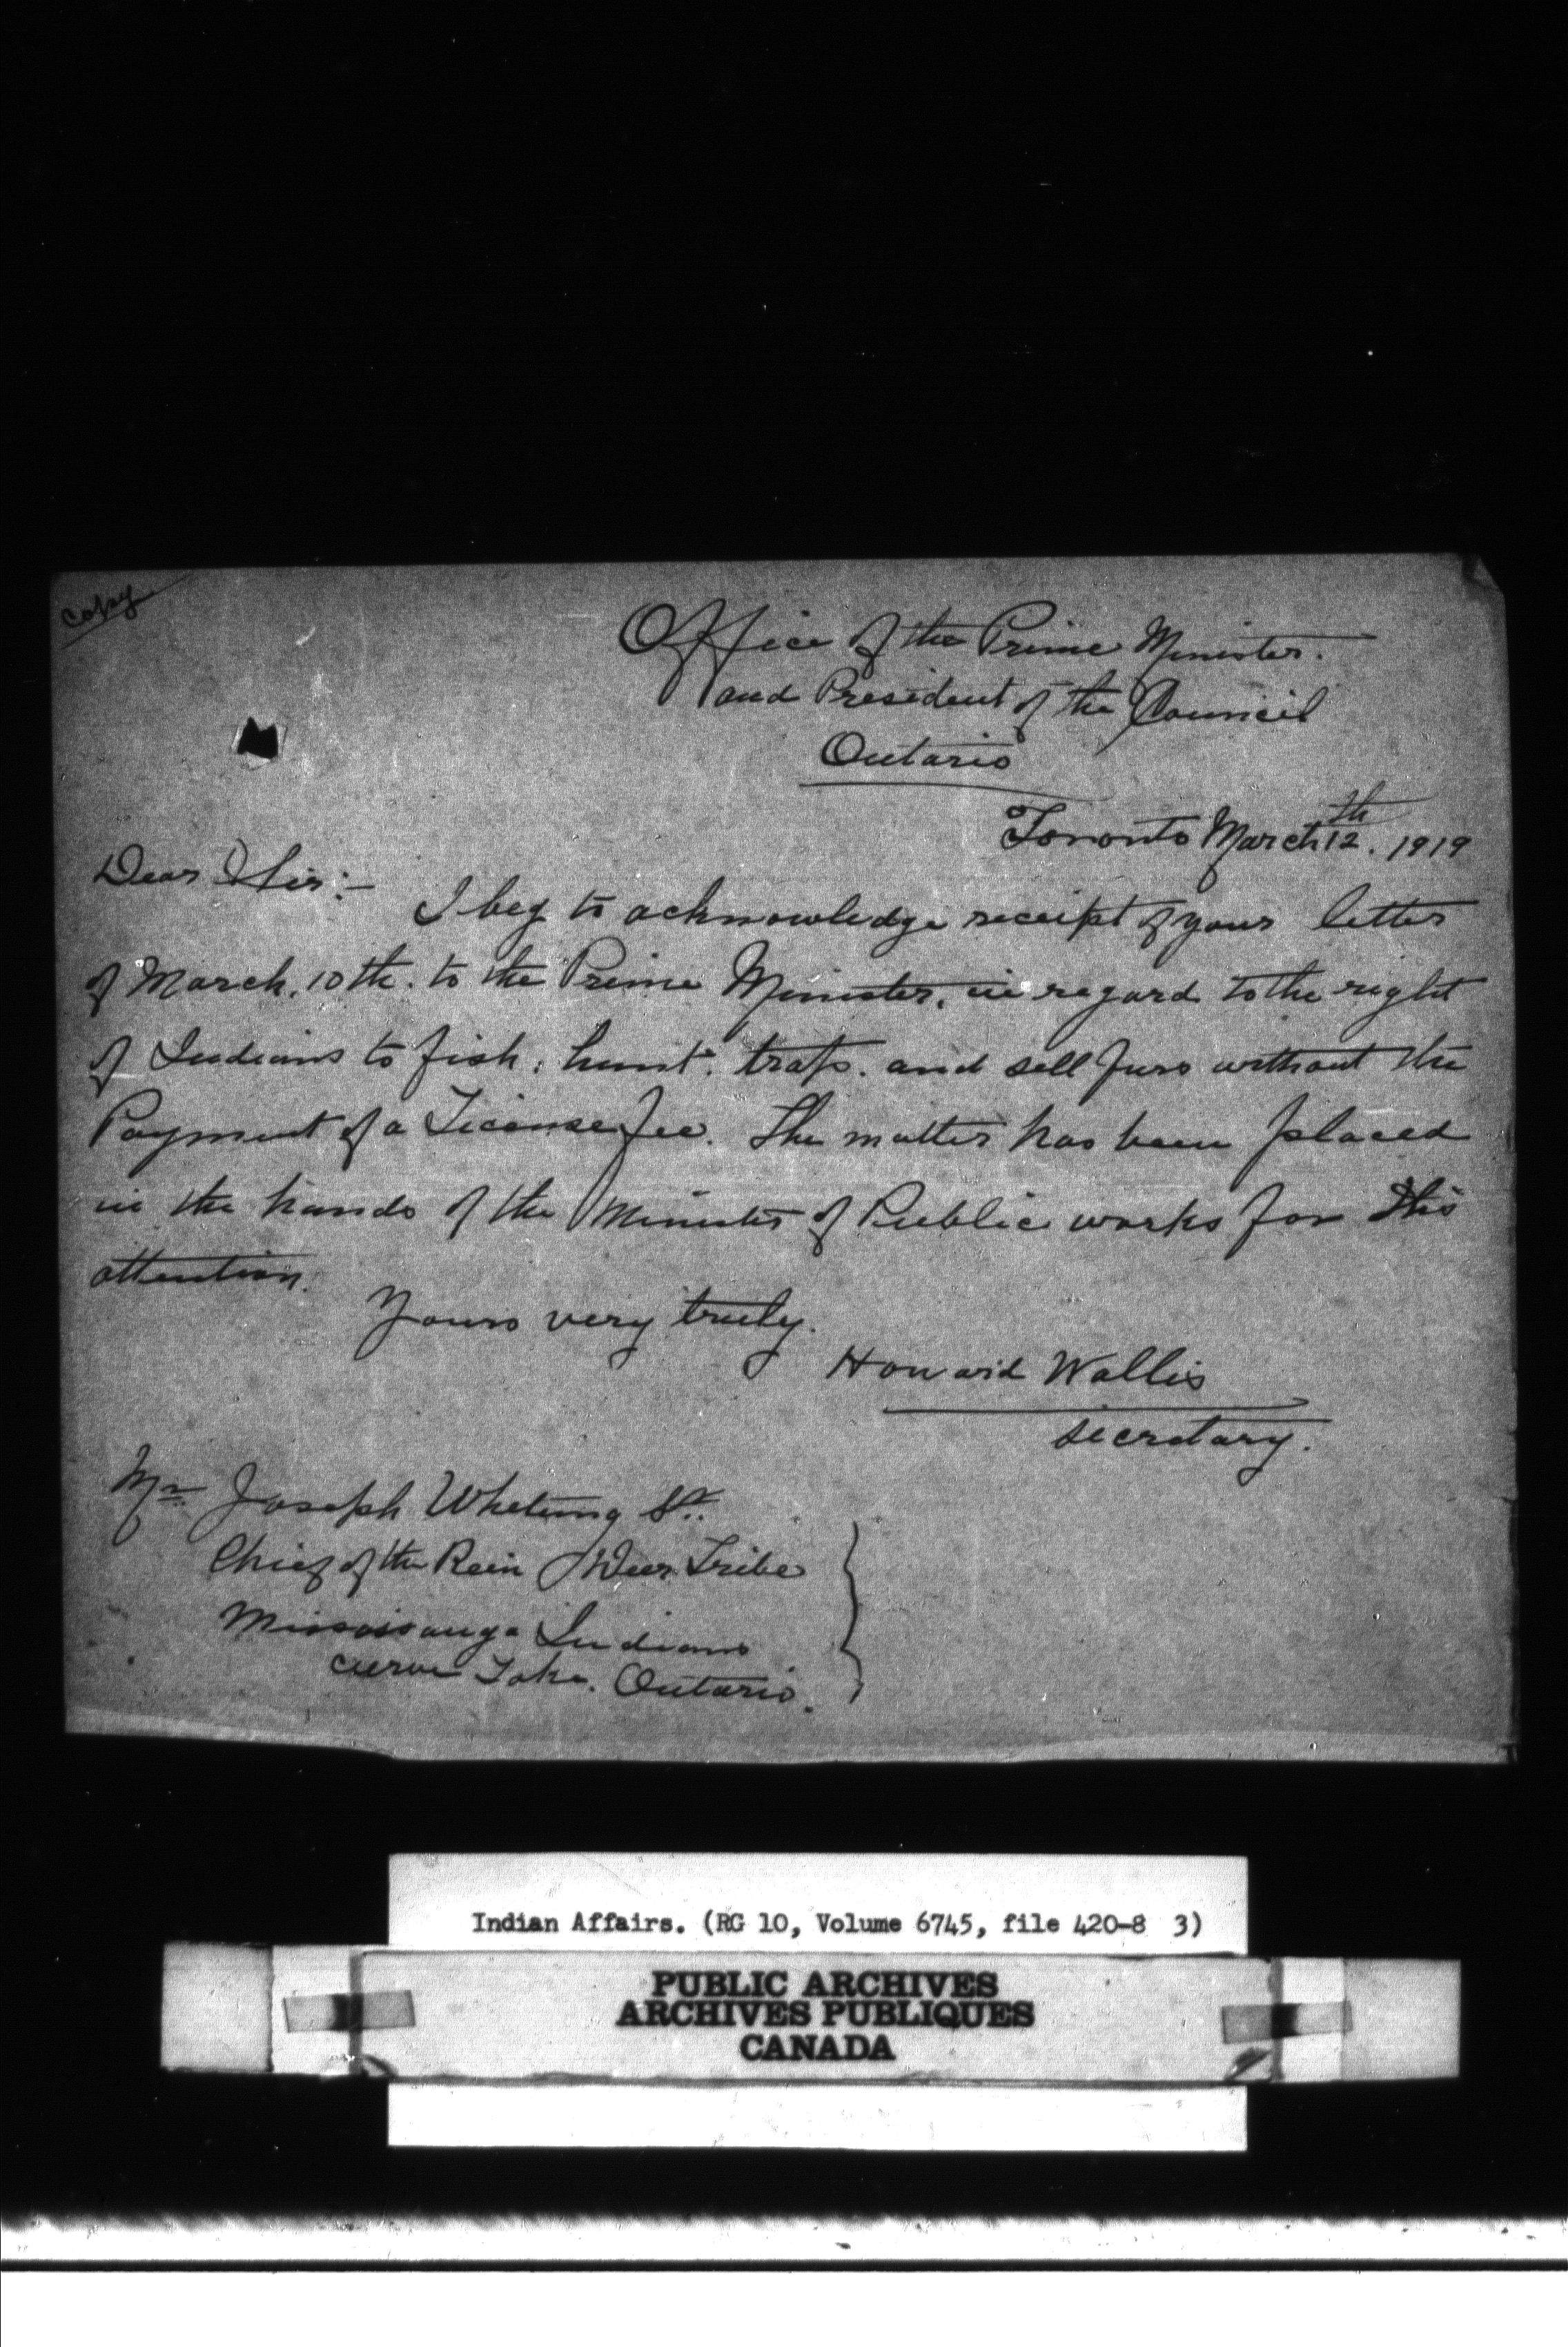 copy
Office of the Prime Minister.
and President of the Council
Ontario
Toronto March 12th. 1919
Dear Sir:-
I beg to acknowledge receipt of your letter
of March. 10th. to the Prime Minister, in regard to the right
of Indians to fish, hunt, trap. and sell furs without the
Payment of a License fee. The matter has been placed
in the hands of the Minister of Public works for this
attention.
Yours very truly.
Howard Wallis
secretary.
Mr. Joseph Whetung Sr.
Chief of the Rein Deer Tribe
Mississauga Indians
curve Lake. Ontario.
Indian Affairs. (RG 10, Volume 6745, file 420-8 3)
PUBLIC ARCHIVES
ARCHIVES PUBLIQUES
CANADA